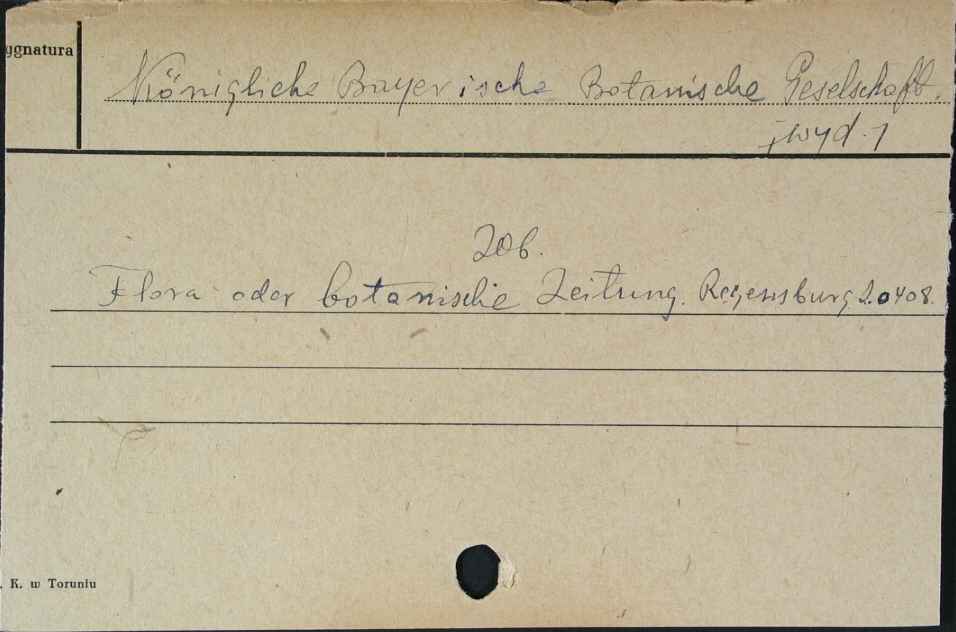 ygnatura
Königliche Bayerische Botanische Geselschaft.
jwyd. 1
Zob.
Flora oder botanische Zeitung. Regensburg 2.0408.
. K. w Toruniu